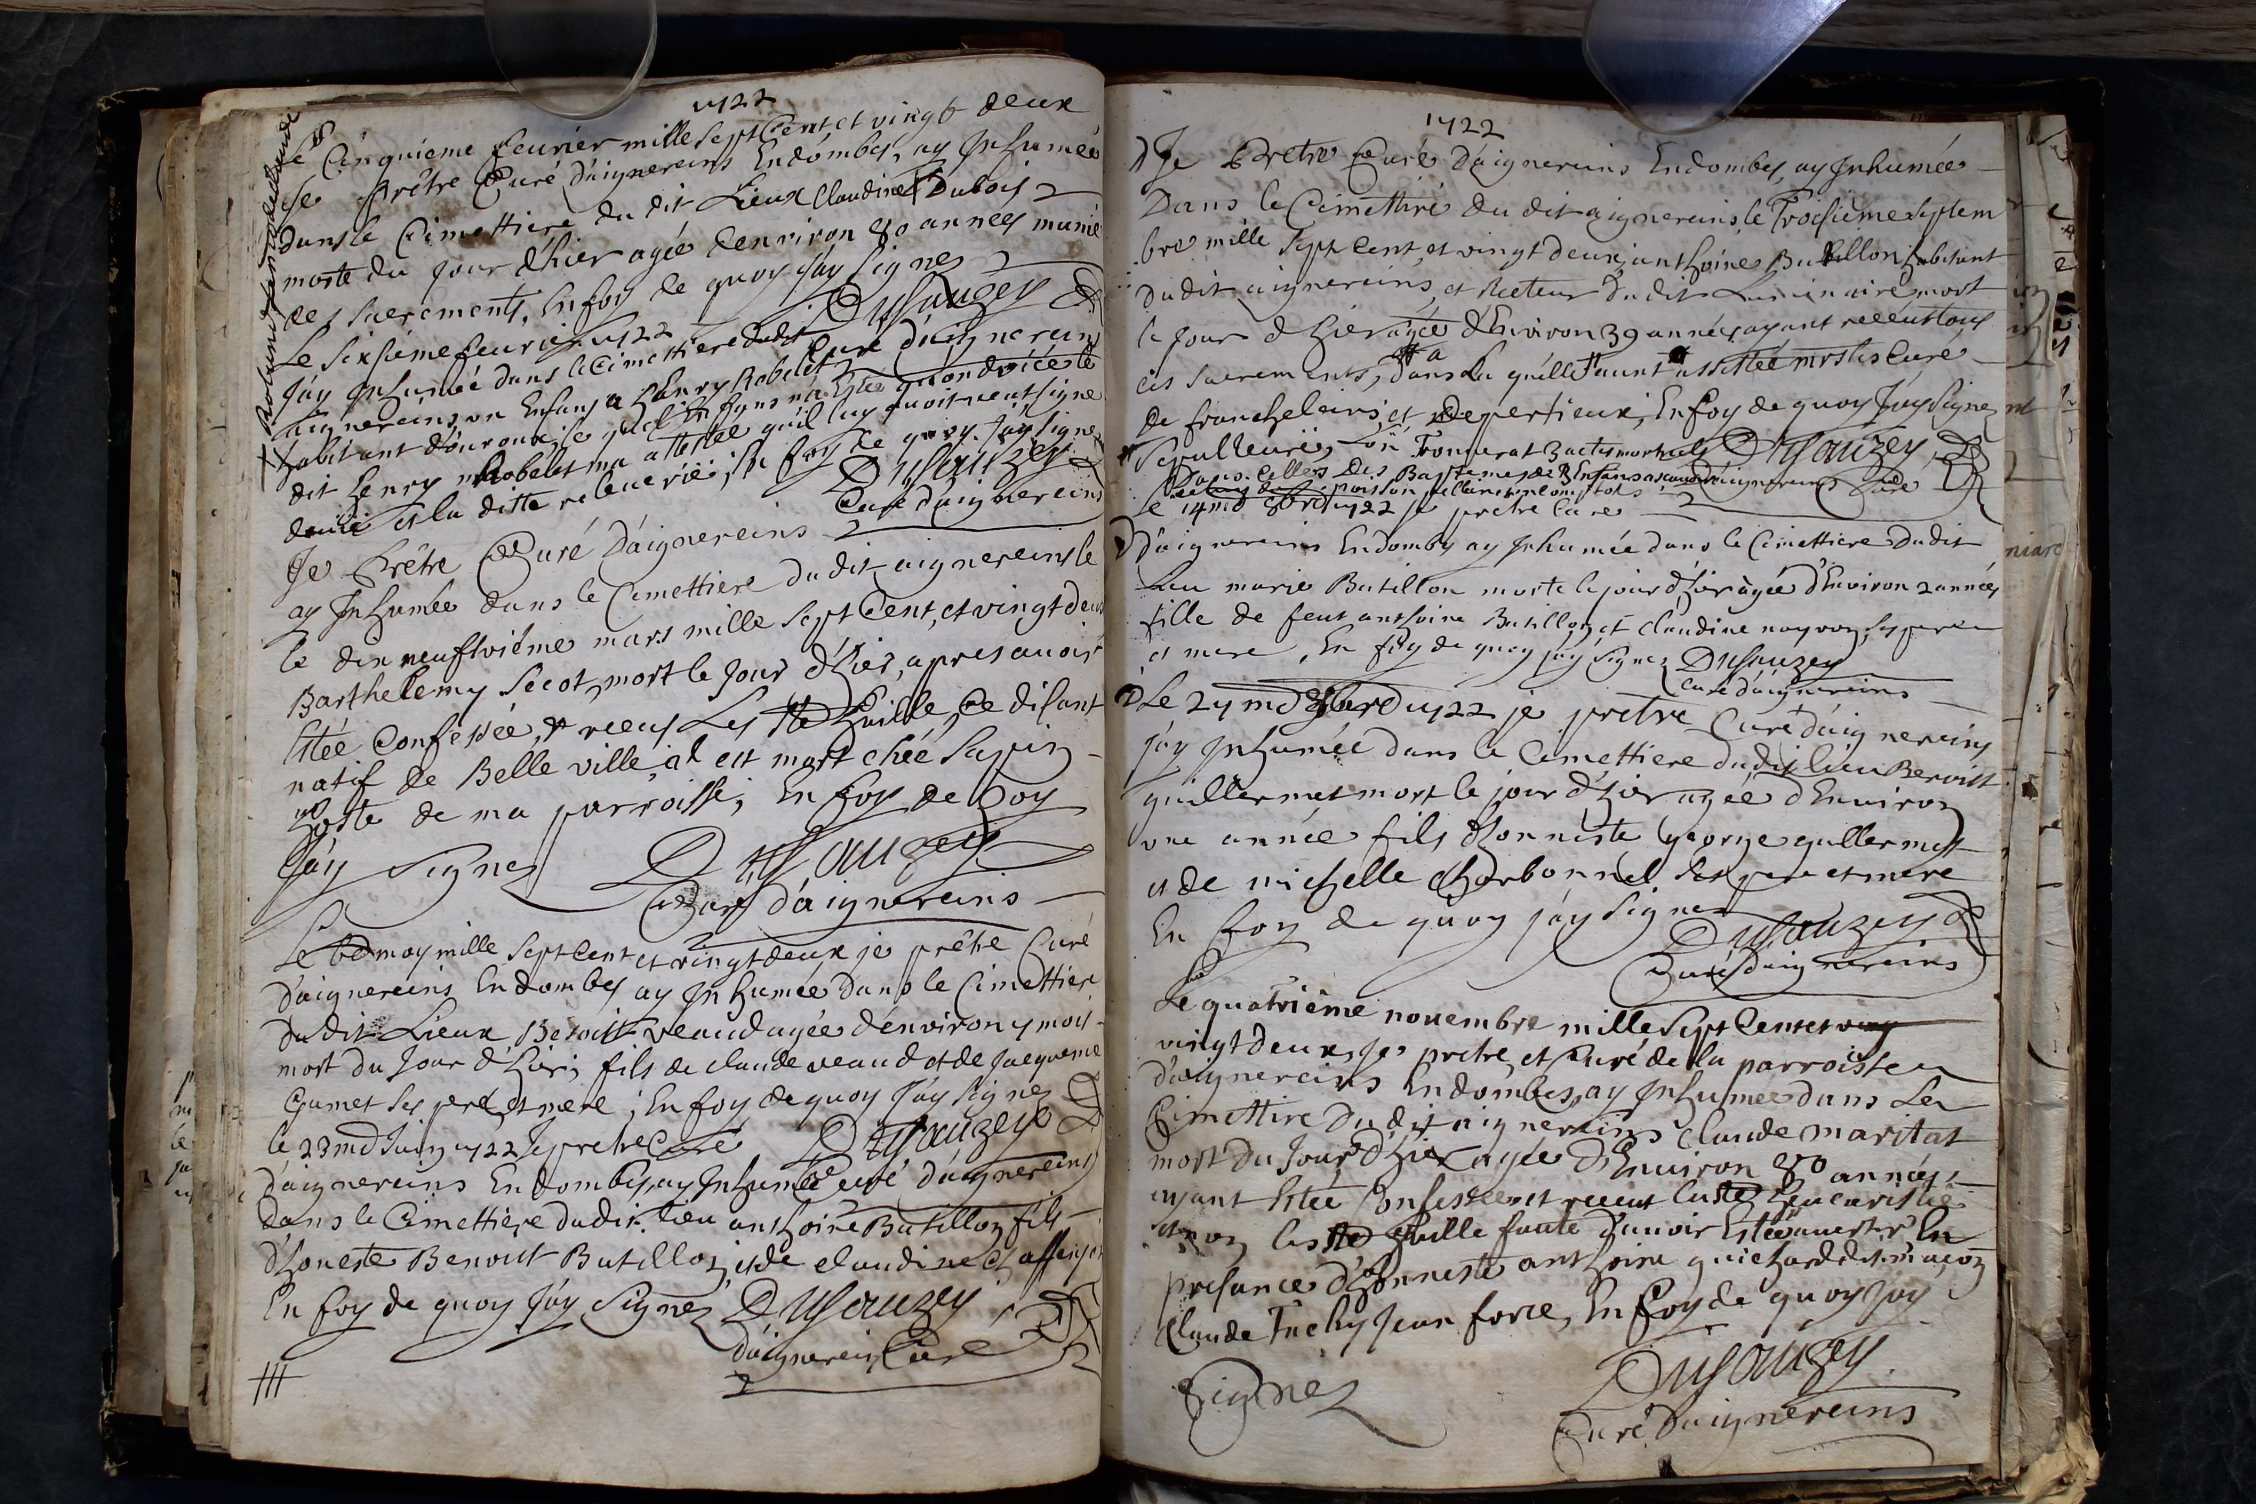 1722
Le Cinquieme feurier mille sept Cent et vingt deux
Je Prêtre Curé d'aignereins Endombes, ay Inhumée
dans le Cimettiere du dit Lieux Claudine Dubois
morte du jour d'hier agée denviron 80 années munie
des sacrements, En foy de quoy j'ay signé
Dusauzey
Curé d'aignereins
Le sixsieme feurier 1722
j'ay Inhumée dans le Cimettiere dudit
aignereins, un Enfans a henry Robelet
habitant d'ouroux, le quel Enfans na Estee quondoiée le
dit henry Robelet ma attestée qu'il luy auoit
et la ditte ; En foy de quoy j'ay signé
Dusauzey
Curé d'aignereins
Je Prêtre Curé D'aignereins
ay Inhumée dans le Cimettiere du dit aignereins le
le dix neuftvième mars mille sept Cent, et vingt deux
Barthelemy Secot, mort le jour d'hier, apres auoir
Estée Confessée, et receus Les Ste huille, ce disant
natif de Belle ville, il est mort chéé Sapin
hoste de ma parroisse, En foy de Coy
J'ay signé Dusauzey
Curé d'aignereins
Le may mille sept Cent et vingt deux je prêtre Curé
d'aignereins Endombes ay Inhumée dans le Cimettiere
du dit Lieux Benoist veaud agée d'environ 4 mois
mort du Jour d'hier, fils de claude veaud et de Jacqueme
Gumet ses pere et mere ; En foy de quoy J'ay signé
Dusauzey
Curé d'aignereins
le 23md Juin 1722 Je pretre Curé
d'aignereins Endombes, ay Inhumée
dans le Cimettiere dudit lieu anthoine Butillon fils
d'honeste Benoist Butillon, et de claudine
En foy de quoy J'ay signé Dusauzey
d'aignereins Curé
1722
Je Pretre Curé d'aignereins Endombes, ay Inhumée
Dans le Cimettire du dit aignereins, le Troisieme septem
bre mille sept Cent, et vingt deux, anthoine Butillon habitant
du dit aignereins, et Recteur du dit Luminaire, mort
le jour d'hier agée d'Environ 39 années ayant receus tous
ces sacrements, dans La quelle a assistée mrs les Curé
de francheleins, et Depertieux, En foy de quoy J'ay signé
Dusauzey
d'aignereins Curé
sepulleure, L'on Trouuerat 3 actes mortuels
Dans Celles Des Baptemes de 3 Enfans
le 14md 8bre 1722 je pretre Curé
D'aignereins Endombes ay Inhumée dans le Cimettiere Dudit
Lieu marie Butillon morte le jour d'hier agée d'Environ 2 années
fille de feut anthoine Butillon, et Claudine nayron, ses pere
et mere, En foy de quoy j'ay signé Dusauzey
Curé d'aignereins
Le 24md 1722 je pretre Curé d'aignereins
j'ay Inhumée dans le Cimettiere dudit lieu Benoist
guillermet mort le jour d'hier agée d'Environ
une année fils d'honneste George guillermet
et de michelle Charbonnel ses pere et mere
En foy de quoy j'ay signé
Dusauzey
Curé d'aignereins
Le quatrième nouembre mille sept Cent et
vingt deux, Je pretre, et Curé de la parroisse
d'aignereins Endombes, ay Inhumée dans Le
Cimettire du dit aignereins Claude maritat
mort du Jour d'hier agée d'Environ 80 années,
ayant Estée Confessée et receut la ste Eucaristie
et non les ste huille faute d'auoir Estée auertir En
presance d'honneste anthoine guichard dit maçon
Claude Jean force, En foy de quoy J'ay
signé Dusauzey
Curé D'aignereins